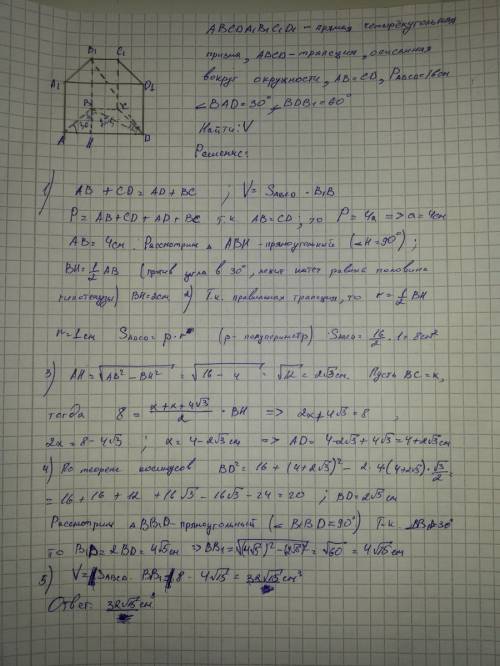 ABCDA1B1C1D1 - прямая четырёхугольная
призма, ABCD - трапеция, описанная
вокруг окружности, AB=CD, PABCD=16см
∠BAD=30°, ∠BDB1=60°
Найти: V
Решение:
B1 C1
A1 D1
B C
30°
A H D
1) AB + CD = AD + BC ; V = SABCD · B1B
P = AB+CD+AD+BC т.к. AB=CD, то P = 4a => a=4см
AB=4см. Рассмотрим △ ABH - прямоугольный (∠H=90°);
BH=1/2 AB (против угла в 30°, лежит катет равный половине
гипотенузы) BH=2см 2) Т.к. правильная трапеция, то r=1/2 BH
r=1см SABCD = p·r (p - полупериметр) SABCD=16/2 · 1=8см²
3) AH=√AB²-BH² = √16-4 = √12 = 2√3 см. Пусть BC=x,
тогда 8 = x+x+4√3/2 · BH => 2x+4√3=8 ,
2x=8-4√3 ; x=4-2√3 см => AD=4-2√3+4√3=4+2√3см
4) По теореме косинусов BD²=16+(4+2√3)²-2·4(4+2√3)·√3/2=
=16+16+12+16√3-16√3-24=20 ; BD=2√5 см
Рассмотрим △BB1D-прямоугольный (∠B1BD=90°) Т.к. ∠B1=30°
то B1D=2BD=4√5см => BB1=√(4√5)²-(2√5)²=√60=4√15см
5) V=SABCD·BB1=8·4√15=32√15см³
Ответ: 32√15см³